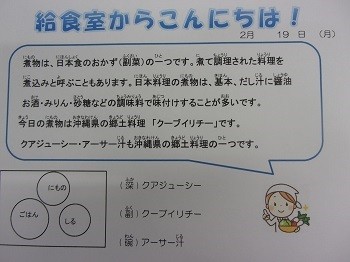 給食室からこんにちは！
2月 19日 (月)
煮物は、日本食のおかず(副菜)の一つです。煮て調理された料理を
煮込みと呼ぶこともあります。日本料理の煮物は、基本、だし汁に醤油
お酒・みりん・砂糖などの調味料で味付けすることが多いです。
今日の煮物は沖縄県の郷土料理「クーブイリチー」です。
クアジューシー・アーサー汁も沖縄県の郷土料理の一つです。
にもの
ごはん
しる
(深) クアジューシー
(副) クーブイリチー
(碗) アーサー汁